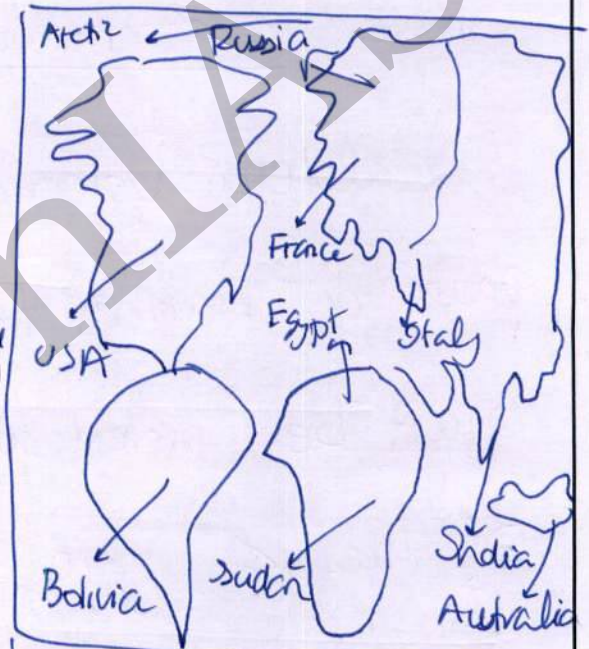 Arctic
Russia
France
USA
Egypt
Italy
Bolivia
Sudan
India
Australia